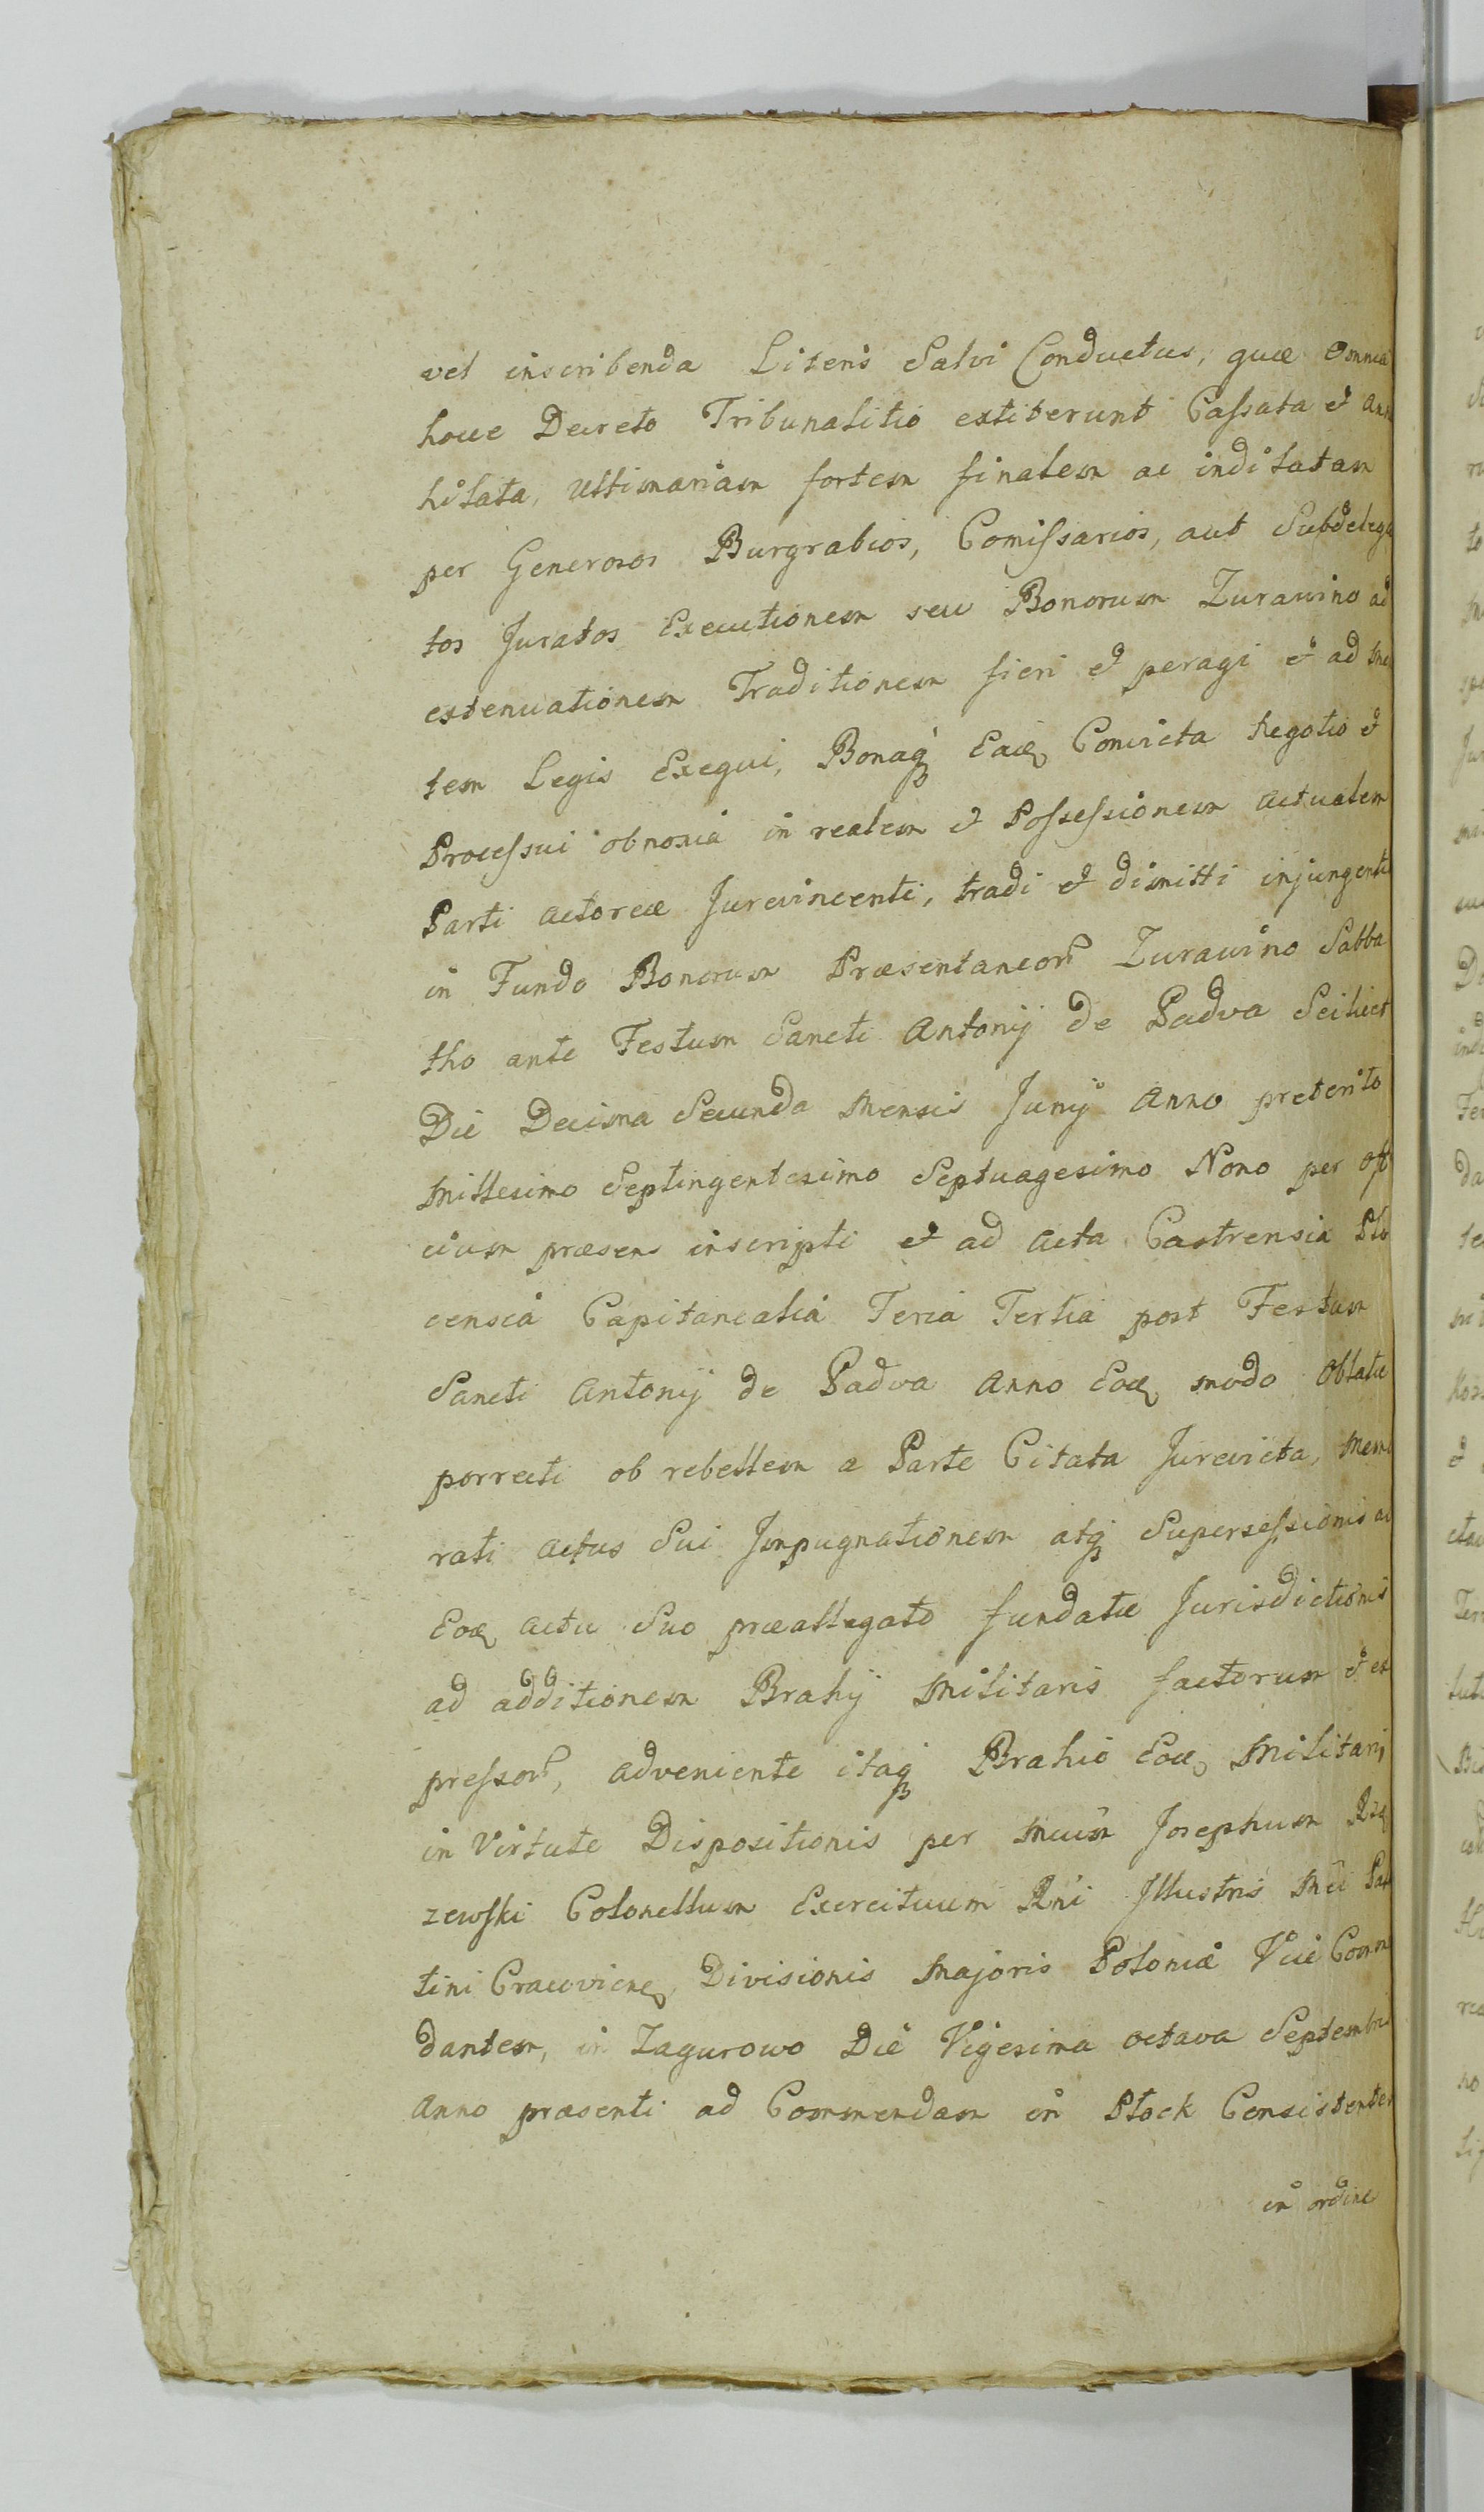 vel inscribenda Literis Salvi Conductus, quæ omnia
hocce Decreto Tribunalitio extiterunt Cassata et An
hilata, ultimariam fortem finalem ac indilatam
per Generosos Burgrabios, Comissarios, aut Subdelega
tos Juratos Executionem seu Bonorum Zurawino ad
extenuationem Traditionem fieri et peragi et ad Men
tem Legis Exequi, Bonaq Eaq Convicta Negotio et
Processui obnoxia in realem et Possessionem actualem
Parti actoreæ Jurevincenti, tradi et dimitti injungenti
in Fundo Bonorum Præsentaneor Zurawino Sabba
tho ante Festum Sancti Antonij de Padva Scilicet
Die Decima Secunda Mensis Junij Anno preterito
Millesimo Septingentesimo Septuagesimo Nono per offi
cium præsens inscripti et ad Acta Castrensia Plo
censia Capitanealia Feria Tertia post Festum
Sancti Antonij de Padva Anno Eoq modo Oblatæ
porrecti ob rebellem a Parte Citata Jurevicta, Memo
rati actus Sui Impugnationem atq Supersessionis ac
Eoq actu Suo præallegato fundatæ Jurisdictionis
ad additionem Brahij Militaris factorum et ex
pressor, adveniente itaq Brahio Eoq Militari
in Virtute Dispositionis per Mcum Josephum
zewski Colonellum Exercituum Rni Illustris Mci Pala
tini Cracoviens Divisionis Majoris Poloniæ Vice Comen
dantem, in Zagurowo Die Vigesima octava Septembris
Anno præsenti ad Commendam in Plock Consistentem
in ordine